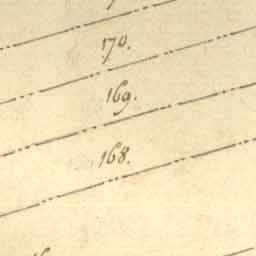 170.
169.
168.